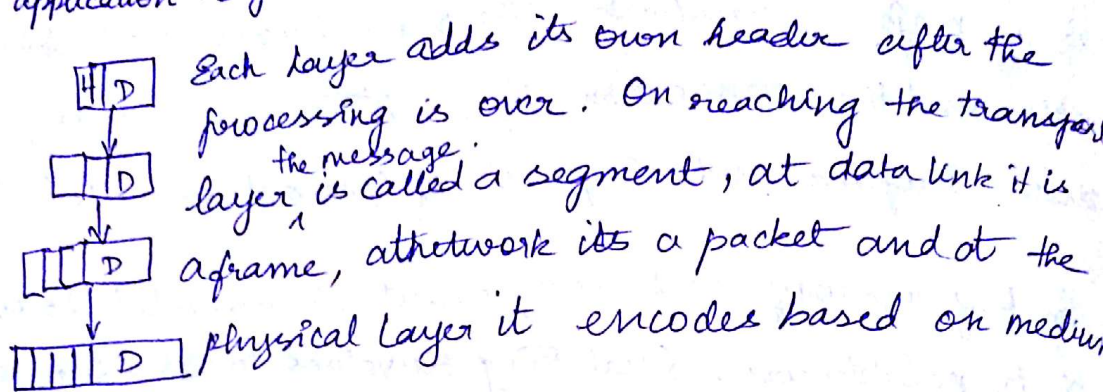 application
H D Each layer adds its own header after the
processing is over. On reaching the transport
the message.
D layer is called a segment, at data link it is
D a frame, at network its a packet and at the
D physical layer it encodes based on medium